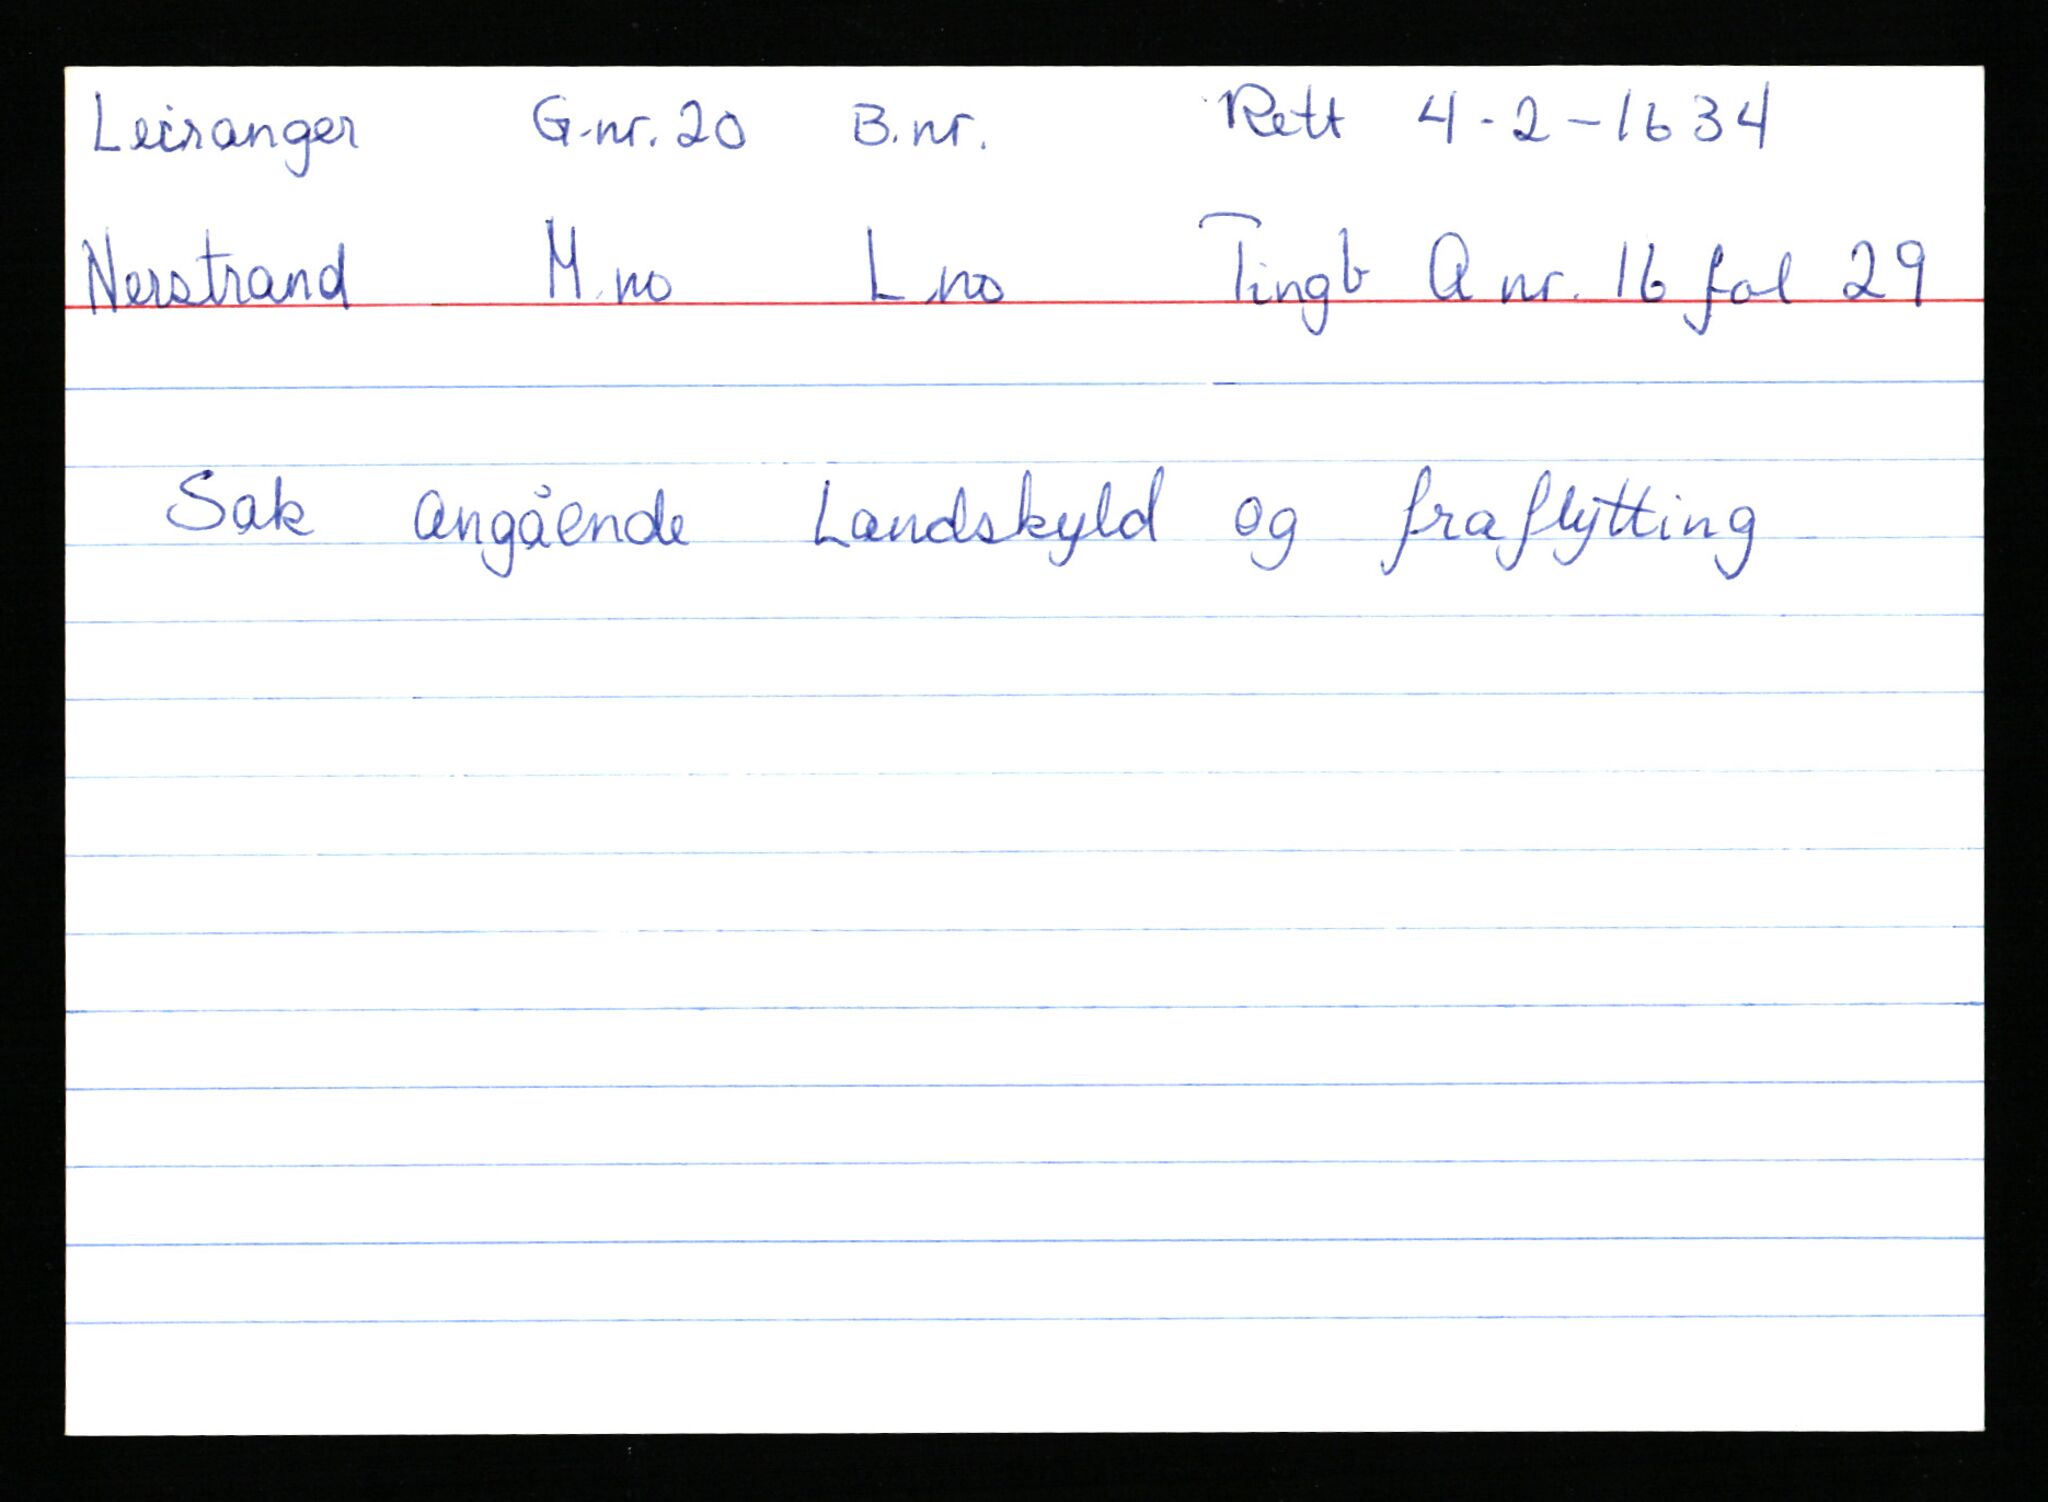 Leiranger G.nr. 20 B.nr. Rett 4-2-1634
Nerstrand M.no L.no Tingb A nr. 16 fol 29
Sak angående Landskyld og fraflytting